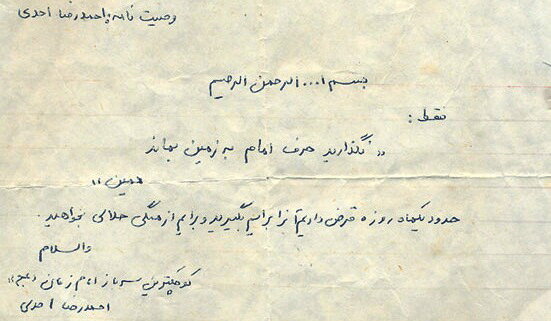 وصیت نامه احمد رضا احدی
بسم ا... الرحمن الرحیم
فقط:
«نگذارید حرف امام به زمین بماند
همین»
حدود یکماه روزه قرض دارم آنرا برایم بگیرید و برایم از همگی حلالی بخواهید.
والسلام
کوچکترین سرباز امام زمان (عج)
احمد رضا احدی